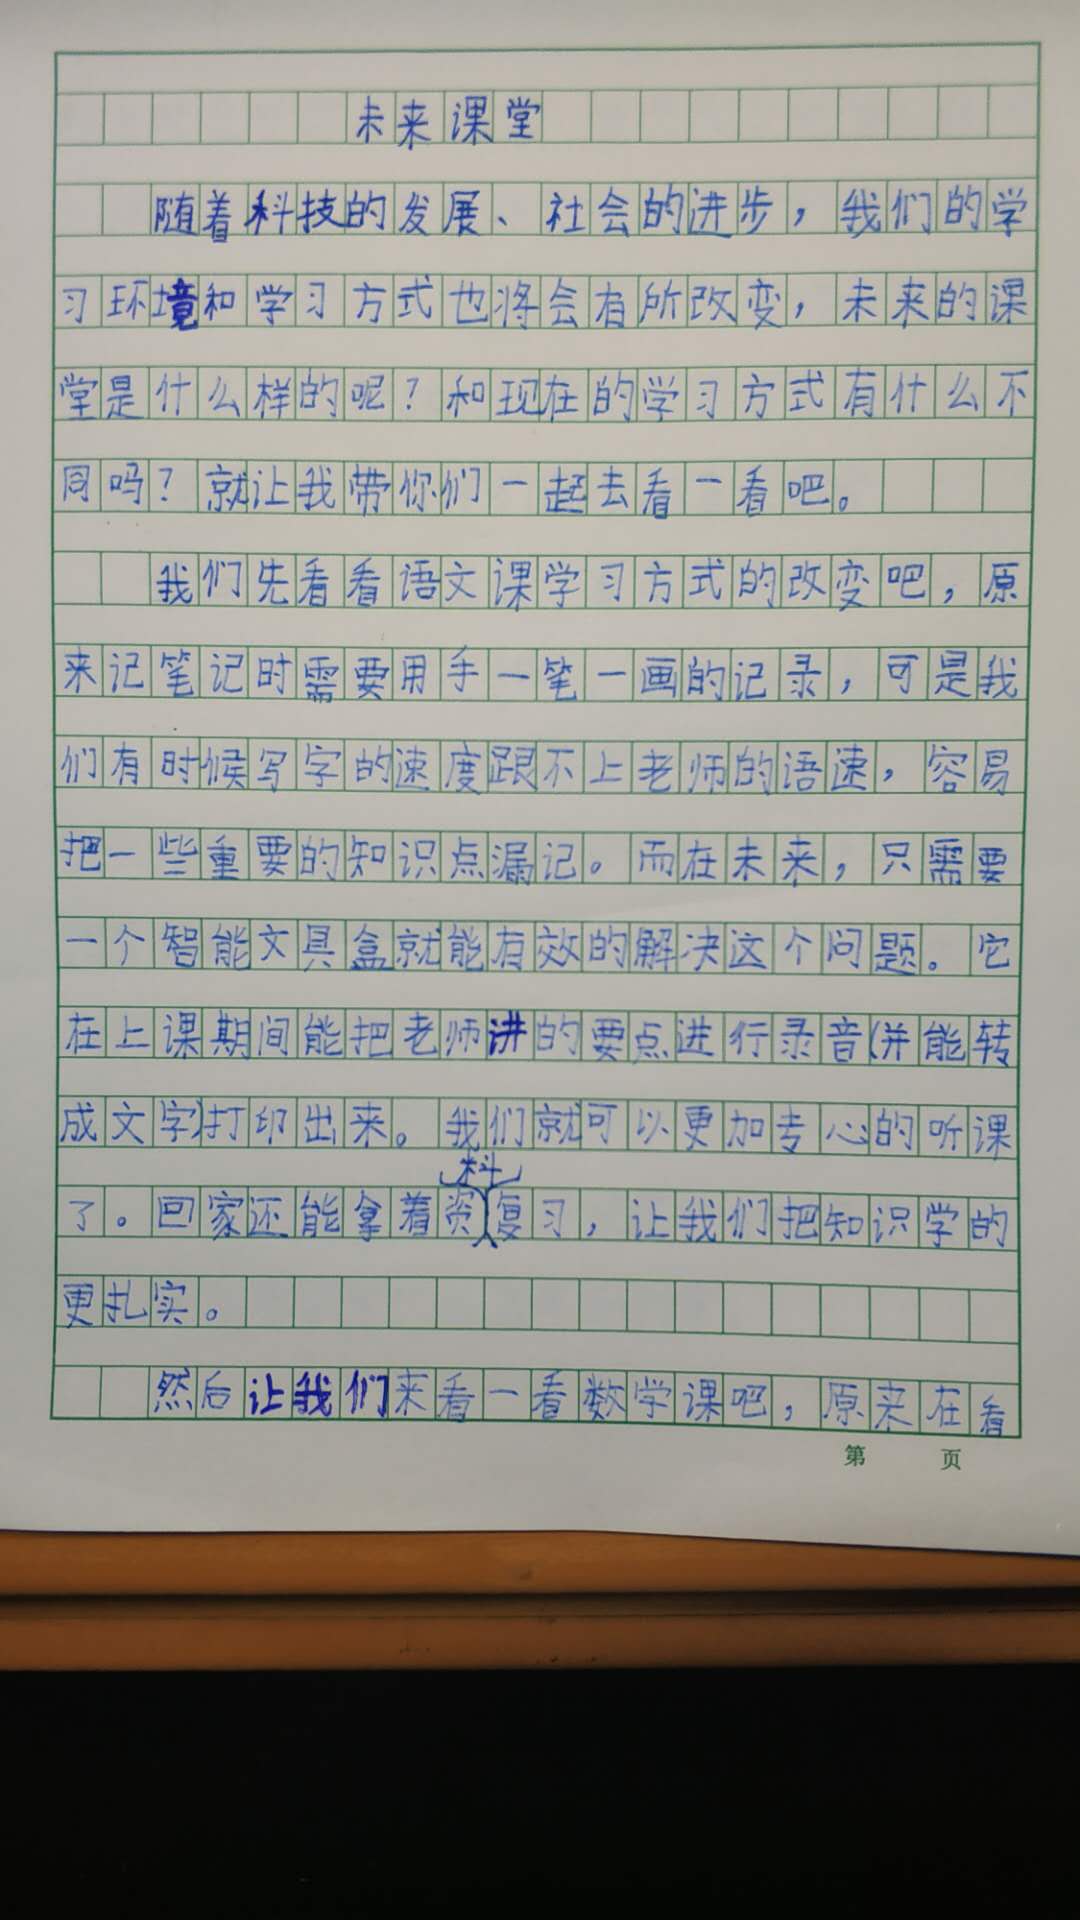 未来课堂
随着科技的发展、社会的进步，我们的学
习环境和学习方式也将会有所改变，未来的课
堂是什么样的呢？和现在的学习方式有什么不
同吗？就让我带你们一起去看一看吧。
我们先看看语文课学习方式的改变吧，原
来记笔记时需要用手一笔一画的记录，可是我
们有时候写字的速度跟不上老师的语速，容易
把一些重要的知识点漏记。而在未来，只需要
一个智能文具盒就能有效的解决这个问题。它
在上课期间能把老师讲的要点进行录音(并能转
成文字)打印出来。我们就可以更加专心的听课
了。回家还能拿着资料复习，让我们把知识学的
更扎实。
然后让我们来看一看数学课吧，原来在看
第 页